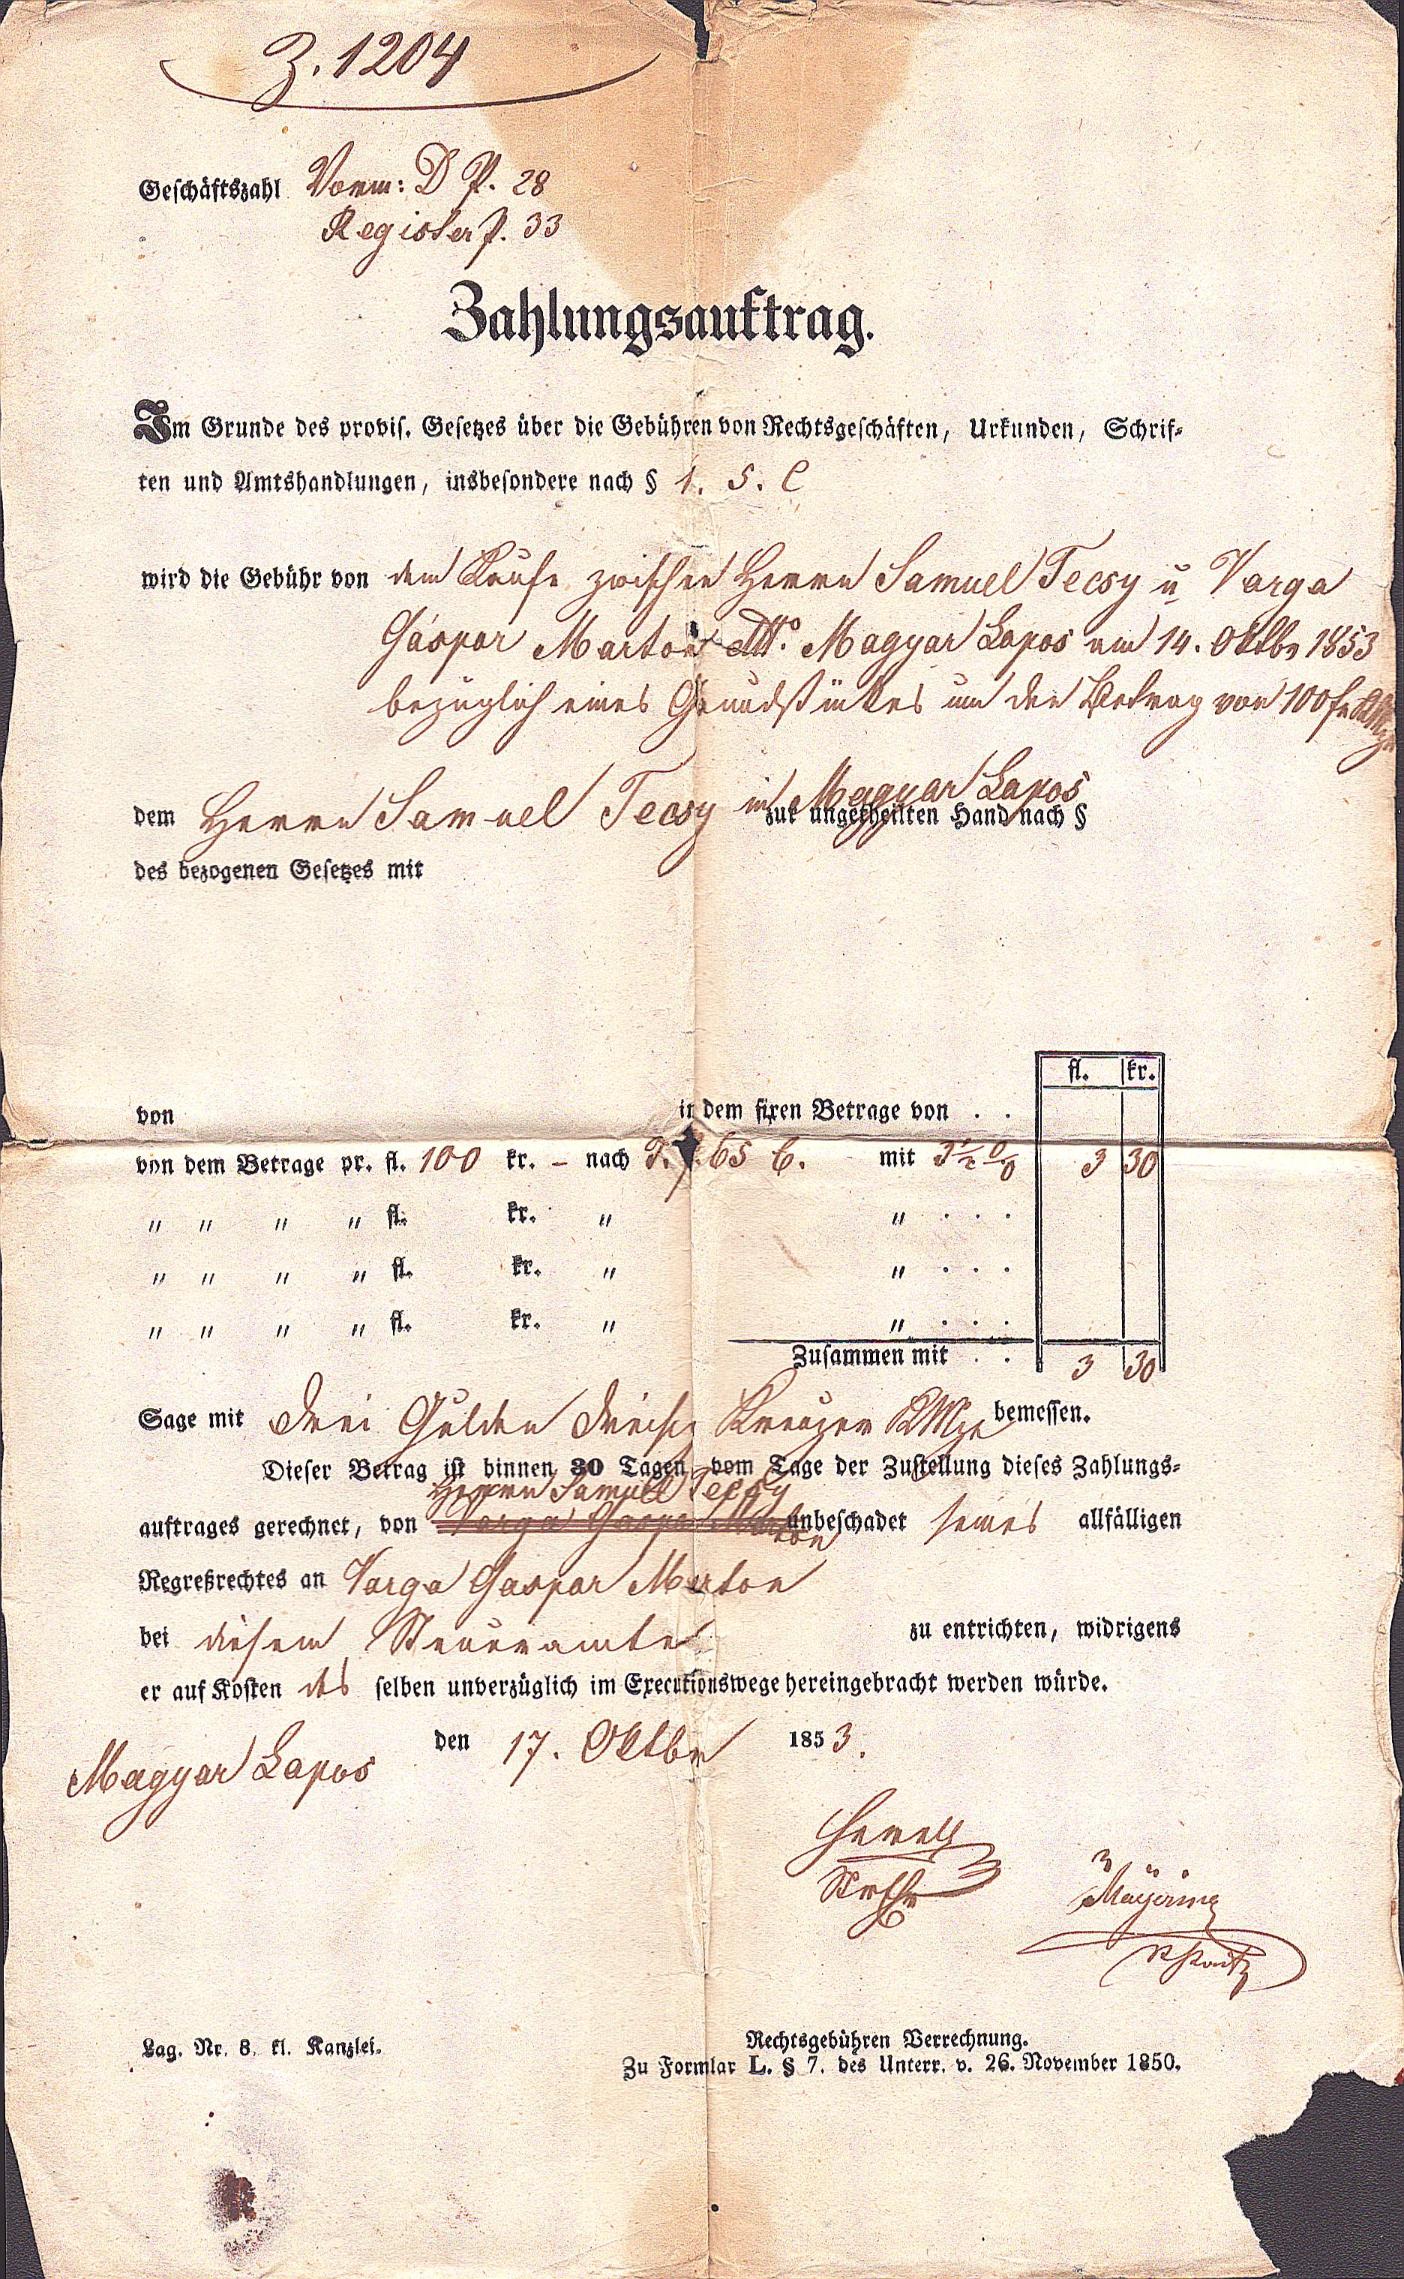 Z. 1204
Geschäftszahl Vorm: D P. 28
Register P. 33
Zahlungsauftrag.
Im Grunde des provis. Gesetzes über die Gebühren von Rechtsgeschäften, Urkunden, Schrif-
ten und Amtshandlungen, insbesondere nach § 1. 5. C
wird die Gebühr von dem Kaufe zwischen Herrn Samuel Tecsy u Varga
Gáspár Marton ddto. Magyar Lapos am 14. Oktbr 1853
bezüglich eines Grundstückes um den Betrag von 100 fr
dem Herrn Samuel Tecsy in Magyar Lapos zur ungetheilten Hand nach §
des bezogenen Gesetzes mit
fl. kr.
von in dem fixen Betrage von . .
von dem Betrage pr. fl. 100 kr. – nach T. P. 65 C. mit 3 1/2 % 3 30
" " " " fl. kr. " " . . .
" " " " fl. kr. " " . . .
" " " " fl. kr. " " . . .
Zusammen mit . . 3 30
Sage mit Drei Gulden Dreißig Kreuzer CMze bemessen.
Dieser Betrag ist binnen 30 Tagen vom Tage der Zustellung dieses Zahlungs-
Herrn Samuel Tecsy
auftrages gerechnet, von Varga Gaspar Marton unbeschadet seines allfälligen
Regreßrechtes an Varga Gaspar Marton
bei diesem Steueramte zu entrichten, widrigens
er auf Kosten des selben unverzüglich im Executionswege hereingebracht werden würde.
Magyar Lapos den 17. Oktbr 1853.
Lag. Nr. 8. kl. Kanzlei.
Rechtsgebühren Verrechnung.
Zu Formlar L. § 7. des Unterr. v. 26. November 1850.